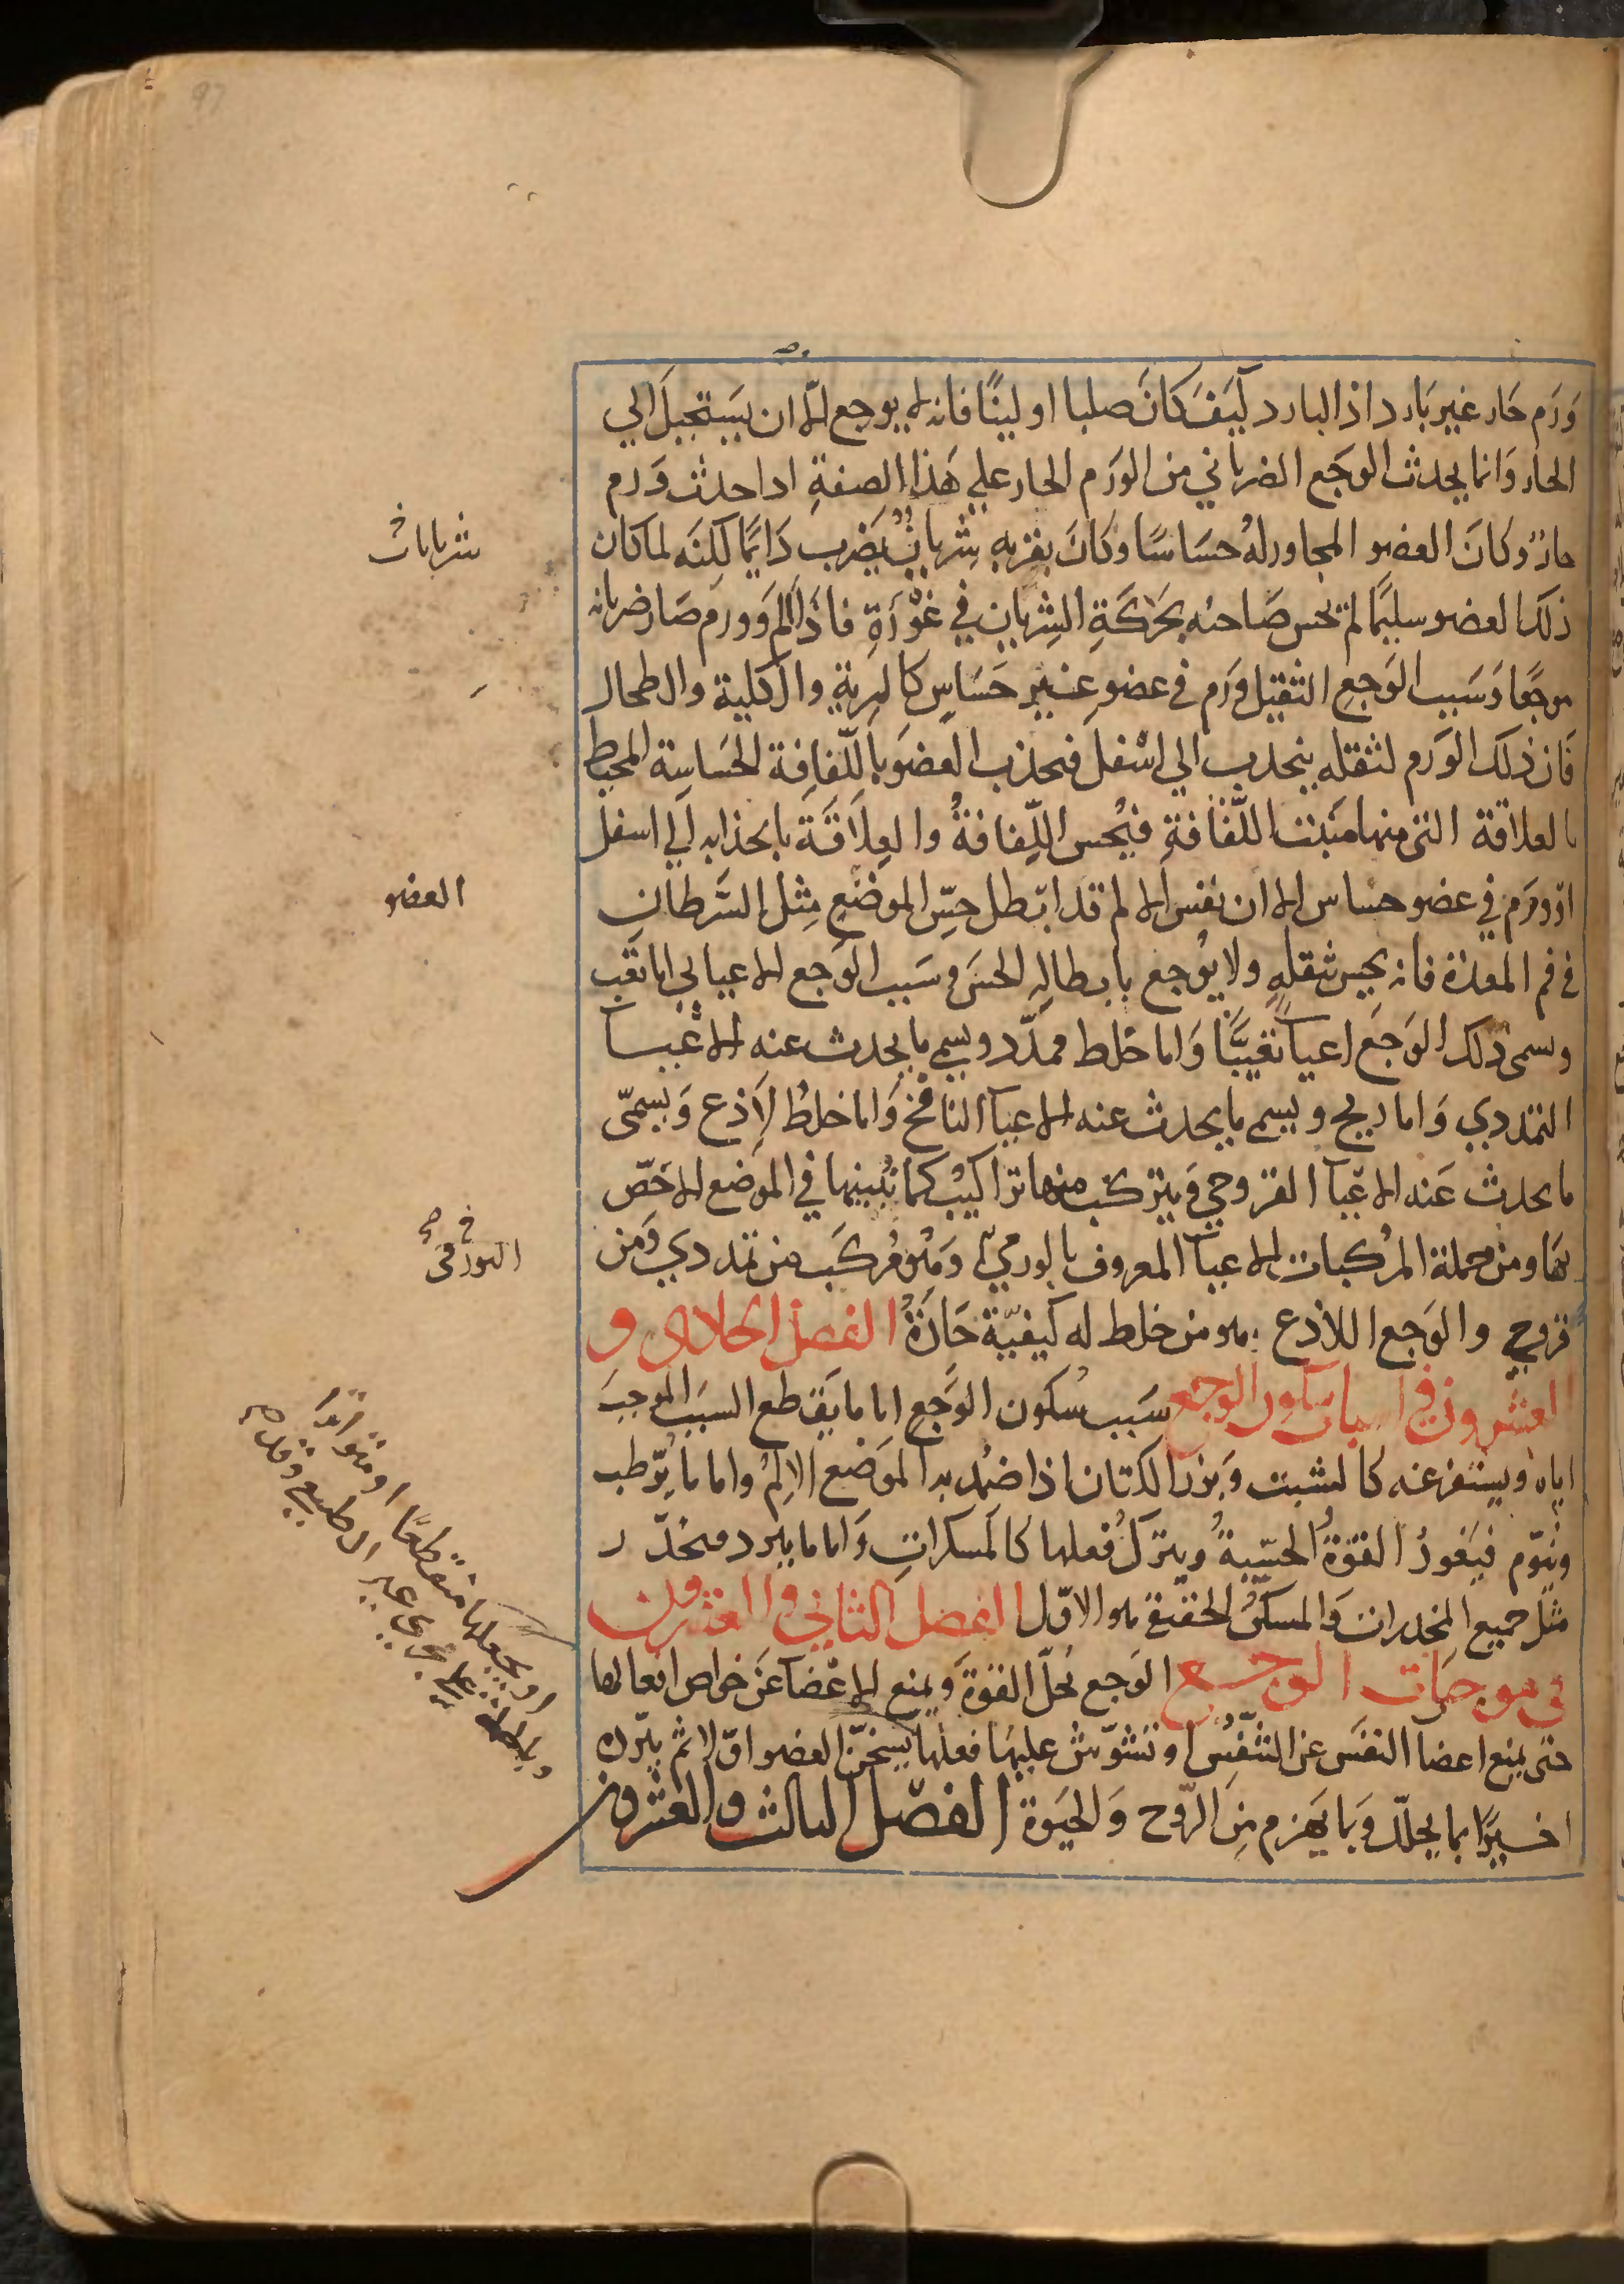 وَرَم حَار غير بَارد اذ البارد كَيفَ كانَ صلبا او لينًا فانه لا يوجع الا ان يَستحيلَ الي
الحار وَانما يحدث الوجَع الضرباني من الورَم الحار علي هَذا الصفةِ اذا حدث وَرم
حارٌ وكانَ العضو المجاور لهُ حسَاسًا وكانَ بقربه شريانٌ يَضرب دَايمًا لكنَه لما كان
ذلك العضو سليمًا لم يحس صَاحبه بحَركَةِ الشِريان في غَوْرَهِ فاذا الم وَورم صَار ضربانه
موجعًا وَسَبب الوَجع الثقيل ورَم في عضوٍ غير حَسَاسٍ كالرية والكلية والطحال
فَان ذلك الورَم لثقله ينجذب الي اسْفل فيجذب العضوَ باللّفافة الحَساسة المحيط
بالعلاقة التي منها منبت اللّفافةِ فيُحس اللِّفافةُ والعِلاقَة بانجذابه الي اسفل
او ورَم في عضو حساس الا ان نفس الالم قد ابْطل حسِّ الموضَع مِثل السَّرطان
في فم المعدة فانه يحِس ثقلهِ ولا يُوجع بابطاله الحسَ وسَبب الوَجع الاعيايي اما تعَب
ويسمى ذلك الوَجَع اعياً تعَبيًّا وَاما خلط ممدّد ويسمي ما يحدث عنه الاعيا
التمددي وَاما ريح ويسمي ما يحدث عنه الاعيآ النافخ وَاما خلط لاذع وَيسمّى
ما يحدث عَنه الاعيآ القروحي وَيتركّب منها تراكيبُ كما نُبينها في الموضع الاخَصّ
بهَا ومن جملة المرُكبات الاعيآ المعروف بالورمي وَهُوَ مُركَب من تمددي وَمن
قروحي والوَجع اللاذع هو من خلط له كيفيّة حَادّةٌ الفصل الحادي و
العشرون في اسباب سكون الوجع سَبب سُكون الوَجع اما ما يَقطع السبَب الموجبَ
اياه ويستفرغه كالشبت وَبزر الكتان اذا ضُمد به الموَضع الالِمُ واما ما يُرّطب
ونيوّم فيَغورُ القوَةُ الحسّيةُ ويتركُ فعلها كالمسكراتِ وَاما ما يبرد فيخدّر
مثل جميع المخدرات وَالمسكنُ الحقيقي هو الاوّل الفصل الثاني والعشرون
في موجبَات الوجع الوَجع يُحلّ القوَةَ وَيمنع الاعْضآ عَن خواص افعالها
حتى يمنع اعضا النفَس عن التنَّفسُ او تشَوّش عليهَا فعلها يسخنّ العضو اوّلا ثم يبّرده
اخيرًا بما يحللّ وَبما يَهزم مِن الرّوح وَالحَيوة الفصل الثالث والعشرون
شريانات
العضو
خ
البورقي
او يجعلها متقطعًا او متواترا
وبالجملة علي مجري غير الطبيعي وقد